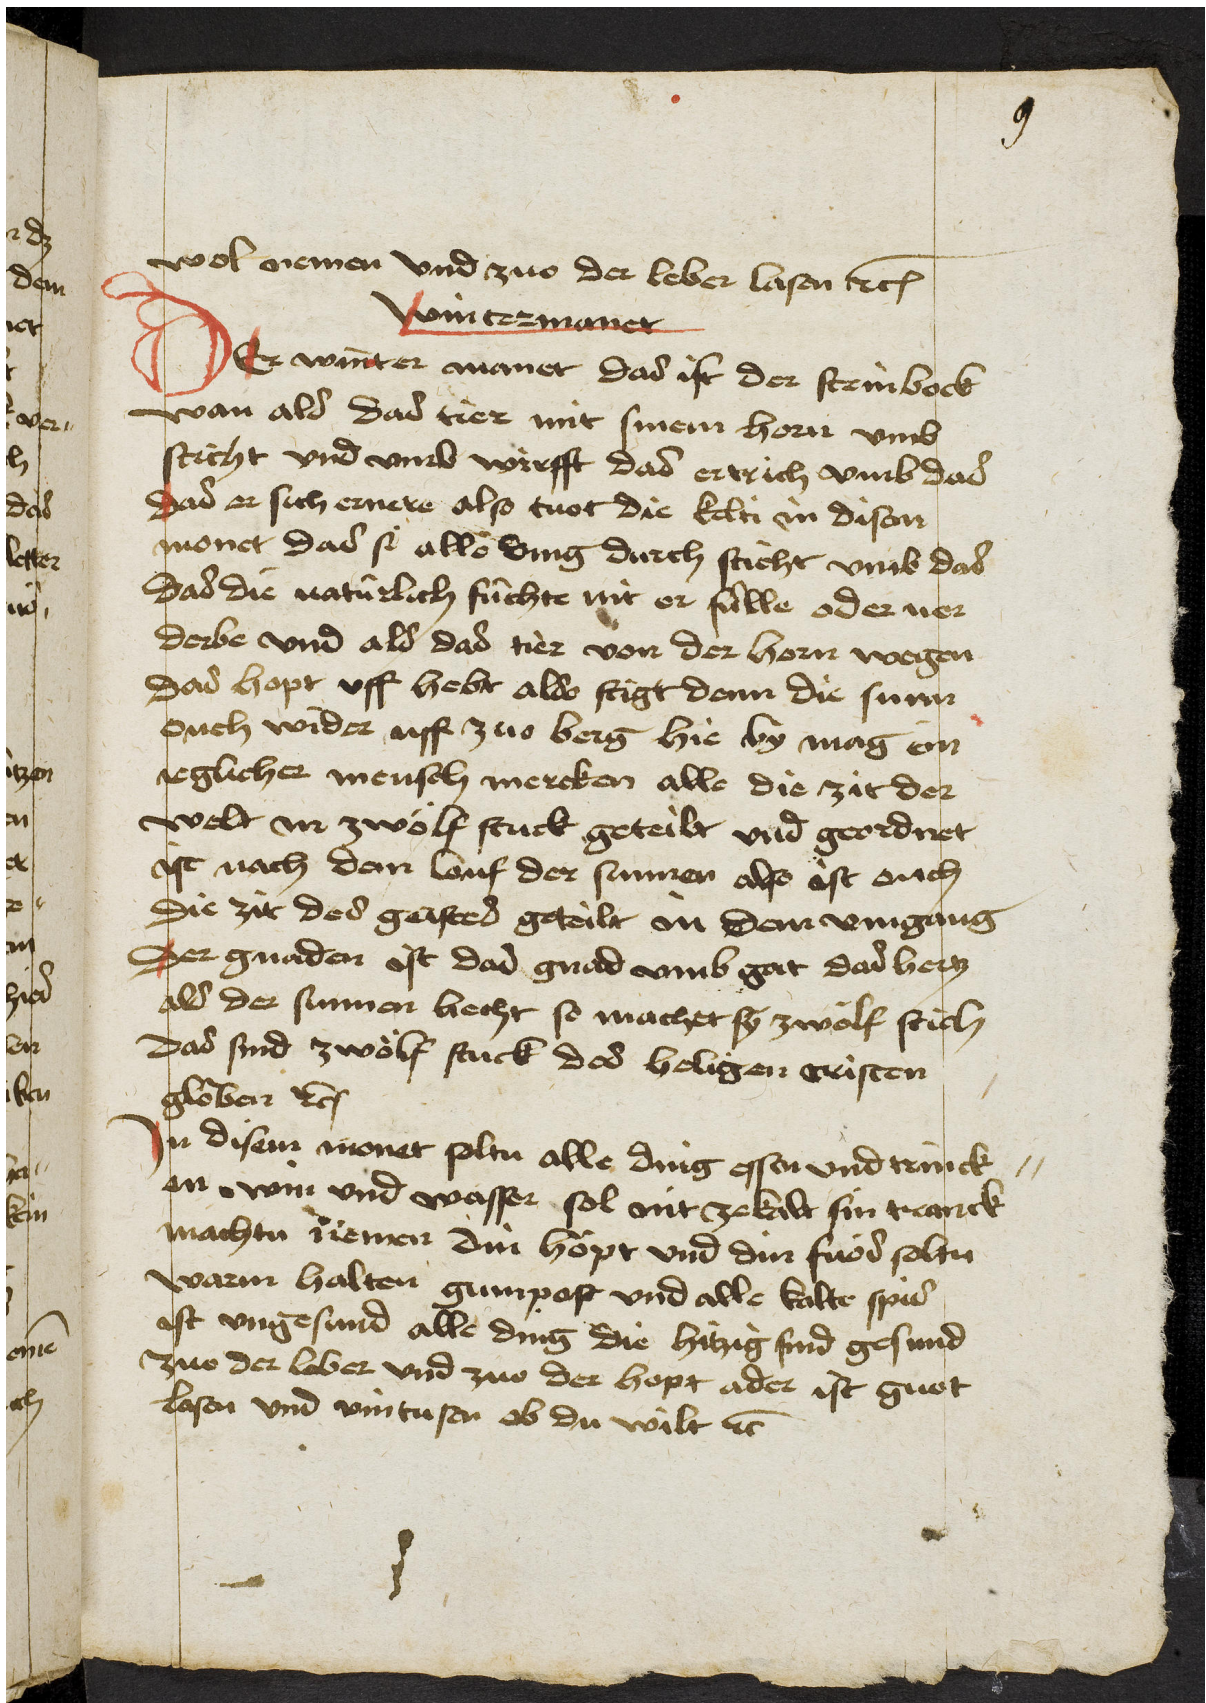 9
wol nemen vnd zuo der leber lasen etc
wintermanet
Der winter manet das ist der steinbock
wan als das tier mit sinem horn vmb
sticht vnd vmb wirfft das ertrich vmb das
das er sich ernere also tuot die kelti in disem
monet das si alle ding durch sticht vmb das
das die natúrlich fúchte nit er fúlle oder ver
derbe vnd als das tier von der horn wegen
das hopt vff hebt also stigt denn die sunn
ouch wider uff zuo berg hie by mag ein
ieglicher mensch mercken alle die zit der
welt in zwölf stuck geteilt vnd geordnet
ist nach dem louf der sunnen also ist ouch
die zit des geistes geteilt in dem vmgang
der gnaden ist das gnad vmb gat das hertz
als der sunnen liecht so machet sy zwölf stich
das sind zwölf stuck des heligen cristen
glöben etc
In disem monet soltu alle ding essen vnd trinck //
en win vnd wasser sol nit ze kalt sin tranck
machtu niemen din höpt vnd din fuös soltu
warm halten gumpost vnd alle kalte spis
ist vngesund alle ding die hitzig sind gesund
zuo der leber vnd zuo der hopt ader ist guot
lasen vnd vintusen ob du wilt etc